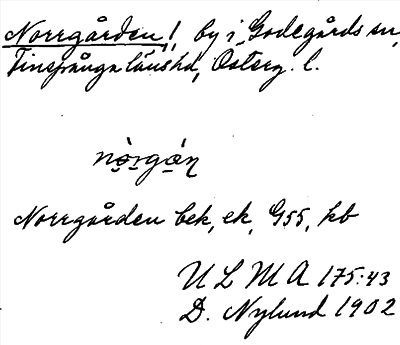 Norrgården, by i Godegårds sn,
Finspånga länshd, Österg. l.
Norrgården bek, ek, G55, kb
ULMA 175:43
D. Nylund 1902